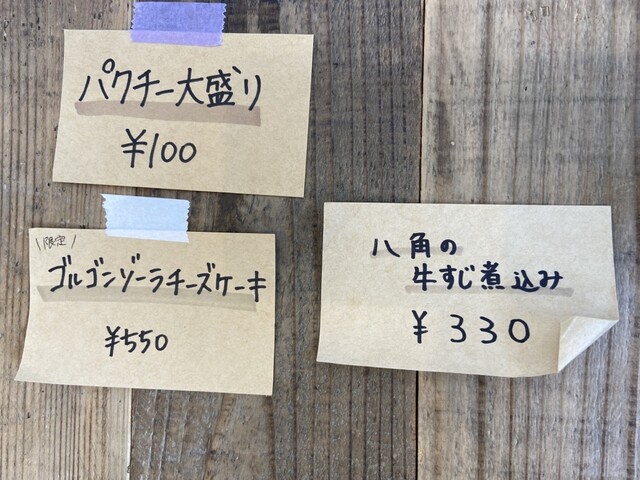 パクチー大盛り
¥100
\限定/
ゴルゴンゾーラチーズケーキ
¥550
八角の
牛すじ煮込み
¥330